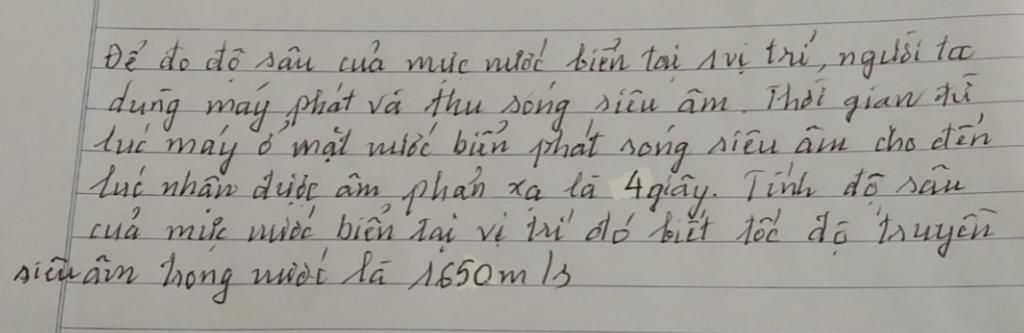 Để đo độ sâu của mực nước biển tại 1 vị trí, người ta
dùng máy phát và thu sóng siêu âm. Thời gian từ
lúc máy ở mặt nước biển phát sóng siêu âm cho đến
lúc nhân được âm phản xạ là 4giây. Tính độ sâu
của mực nước biển tại vị trí đó biết tốc độ truyền
siêu âm trong nước là 1650m/s